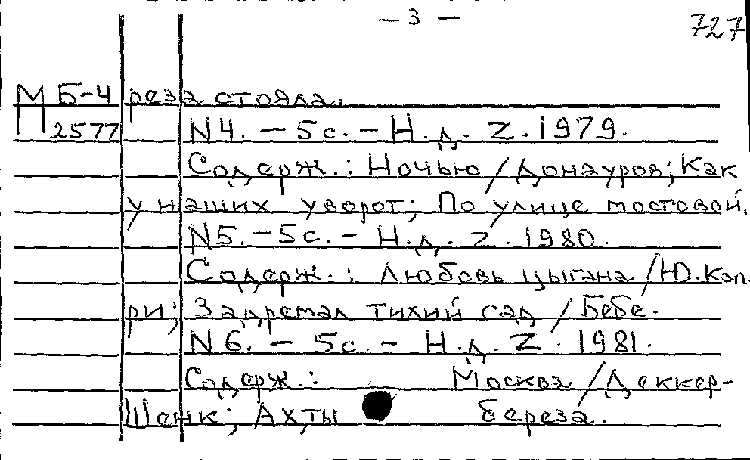 – 3 –
727
М Б-4 реза стояла.
П 2577 N4. – 5с. – Н.д. Z. 1979.
Содерж.: Ночью / Донауров; Как
у наших уворот; По улице мостовой.
N5. – 5с. – Н.д. Z. 1980.
Содерж.: Любовь цыгана / Ю. Кап-
ри; Задремал тихий сад / Бебе.
N6. – 5с. – Н.д. Z. 1981.
Содерж.: Москва / Деккер-
Шенк; Ах, ты береза.